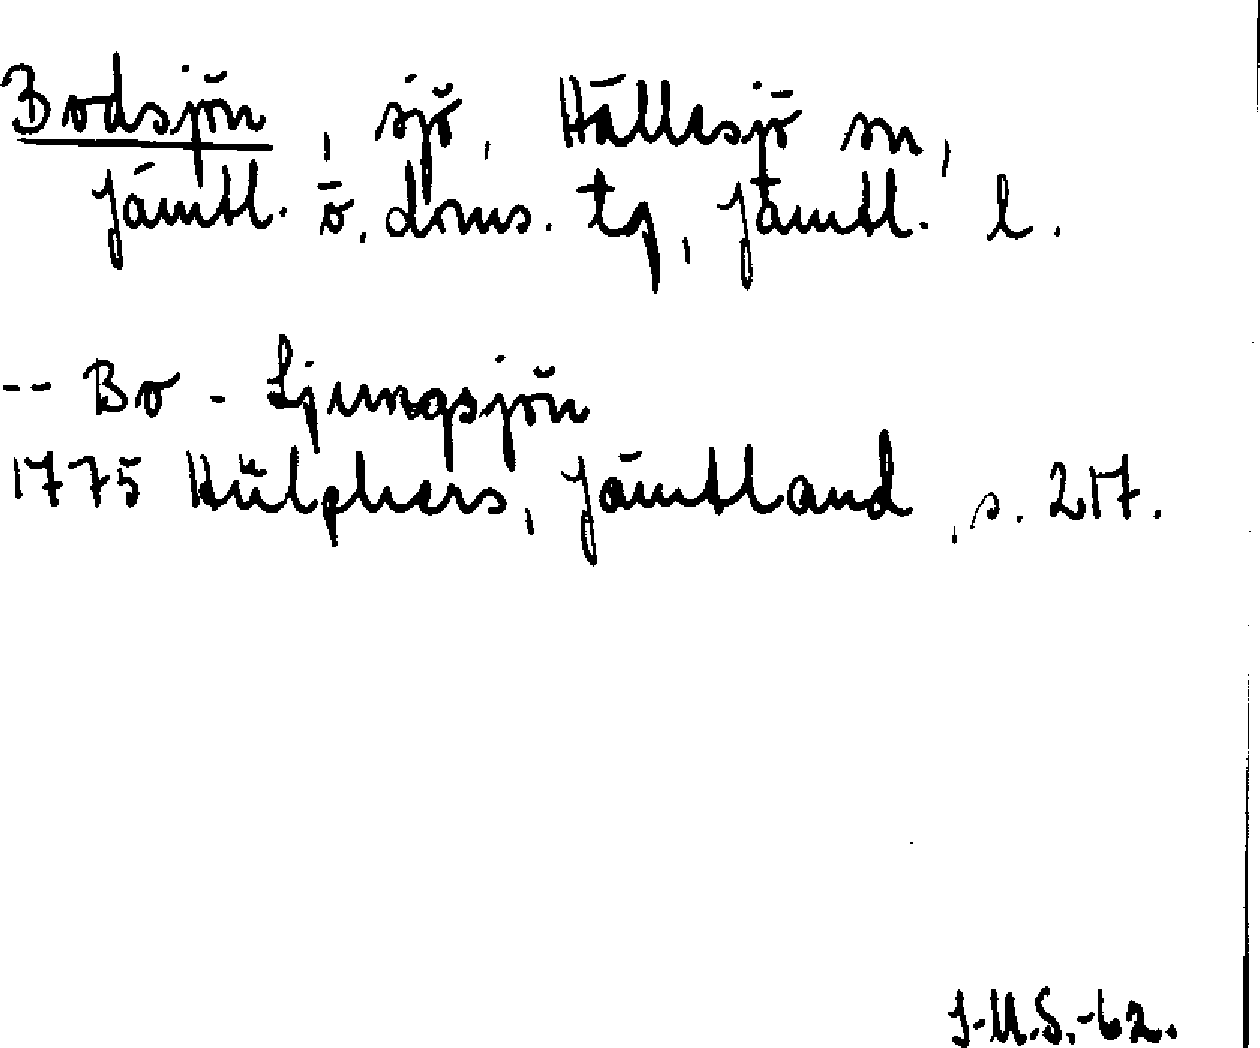 Bodsjön, sjö, Hällesjö sn,
Jämtl. ö. doms. tg, Jämtl. l.
-- Bo - Ljungsjön
1775 Hülphers, Jämtland, s. 217.
J-M.S.-62.